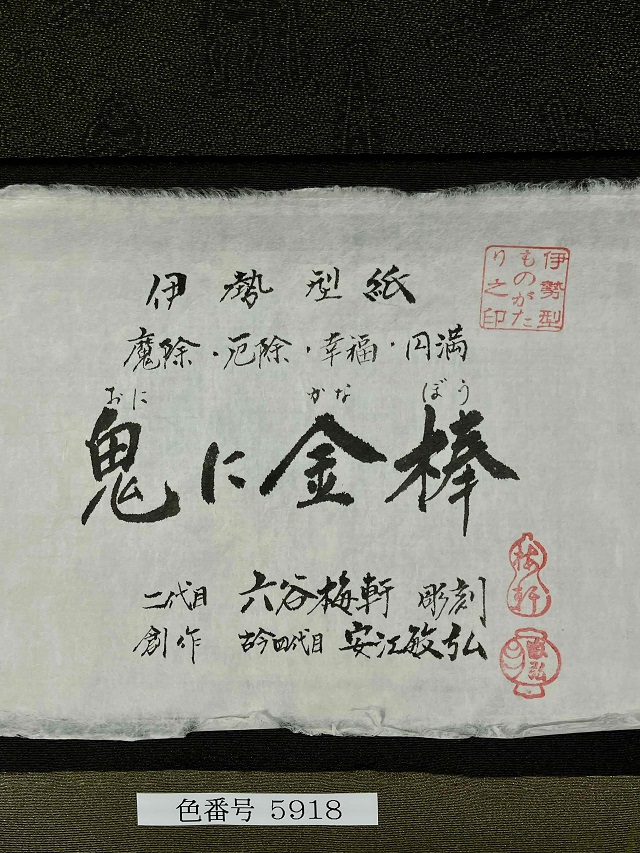 伊勢型紙
伊勢型
ものがた
り之印
魔除・厄除・幸福・円満
おに かな ぼう
鬼に金棒
二代目 六谷梅軒 彫刻
梅軒
創作 古今四代目 安江敏弘
敏弘
色番号 5918